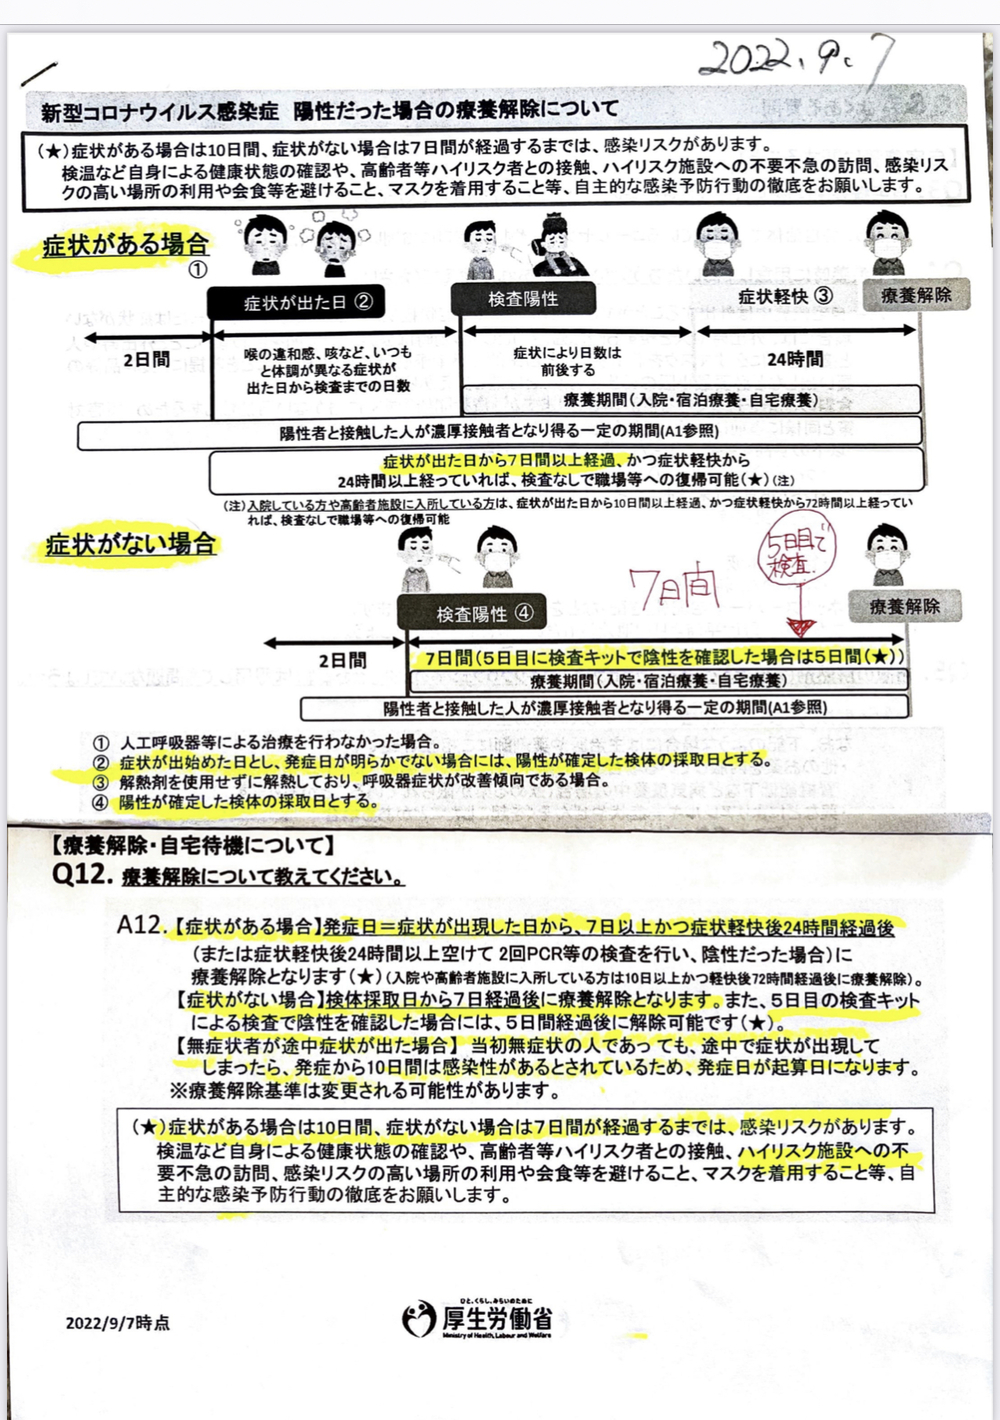 2022.9.7
新型コロナウイルス感染症 陽性だった場合の療養解除について
(★)症状がある場合は10日間、症状がない場合は7日間が経過するまでは、感染リスクがあります。
検温など自身による健康状態の確認や、高齢者等ハイリスク者との接触、ハイリスク施設への不要不急の訪問、感染リス
クの高い場所の利用や会食等を避けること、マスクを着用すること等、自主的な感染予防行動の徹底をお願いします。
症状がある場合
①
症状が出た日 ②
検査陽性
症状軽快 ③
療養解除
2日間
喉の違和感、咳など、いつも
と体調が異なる症状が
出た日から検査までの日数
症状により日数は
前後する
24時間
療養期間(入院・宿泊療養・自宅療養)
陽性者と接触した人が濃厚接触者となり得る一定の期間(A1参照)
症状が出た日から7日間以上経過、かつ症状軽快から
24時間以上経っていれば、検査なしで職場等への復帰可能(★)(注)
(注)入院している方や高齢者施設に入所している方は、症状が出た日から10日間以上経過、かつ症状軽快から72時間以上経ってい
れば、検査なしで職場等への復帰可能
症状がない場合
5日目で
検査
7日間
検査陽性 ④
療養解除
2日間
7日間(5日目に検査キットで陰性を確認した場合は5日間(★))
療養期間(入院・宿泊療養・自宅療養)
陽性者と接触した人が濃厚接触者となり得る一定の期間(A1参照)
① 人工呼吸器等による治療を行わなかった場合。
② 症状が出始めた日とし、発症日が明らかでない場合には、陽性が確定した検体の採取日とする。
③ 解熱剤を使用せずに解熱しており、呼吸器症状が改善傾向である場合。
④ 陽性が確定した検体の採取日とする。
【療養解除・自宅待機について】
Q12. 療養解除について教えてください。
A12.【症状がある場合】発症日＝症状が出現した日から、7日以上かつ症状軽快後24時間経過後
(または症状軽快後24時間以上空けて 2回PCR等の検査を行い、陰性だった場合)に
療養解除となります(★)(入院や高齢者施設に入所している方は10日以上かつ軽快後72時間経過後に療養解除)。
【症状がない場合】検体採取日から7日経過後に療養解除となります。また、5日目の検査キット
による検査で陰性を確認した場合には、5日間経過後に解除可能です(★)。
【無症状者が途中症状が出た場合】 当初無症状の人であっても、途中で症状が出現して
しまったら、発症から10日間は感染性があるとされているため、発症日が起算日になります。
※療養解除基準は変更される可能性があります。
(★)症状がある場合は10日間、症状がない場合は7日間が経過するまでは、感染リスクがあります。
検温など自身による健康状態の確認や、高齢者等ハイリスク者との接触、ハイリスク施設への不
要不急の訪問、感染リスクの高い場所の利用や会食等を避けること、マスクを着用すること等、自
主的な感染予防行動の徹底をお願いします。
2022/9/7時点
ひと、くらし、みらいのために
厚生労働省
Ministry of Health, Labour and Welfare